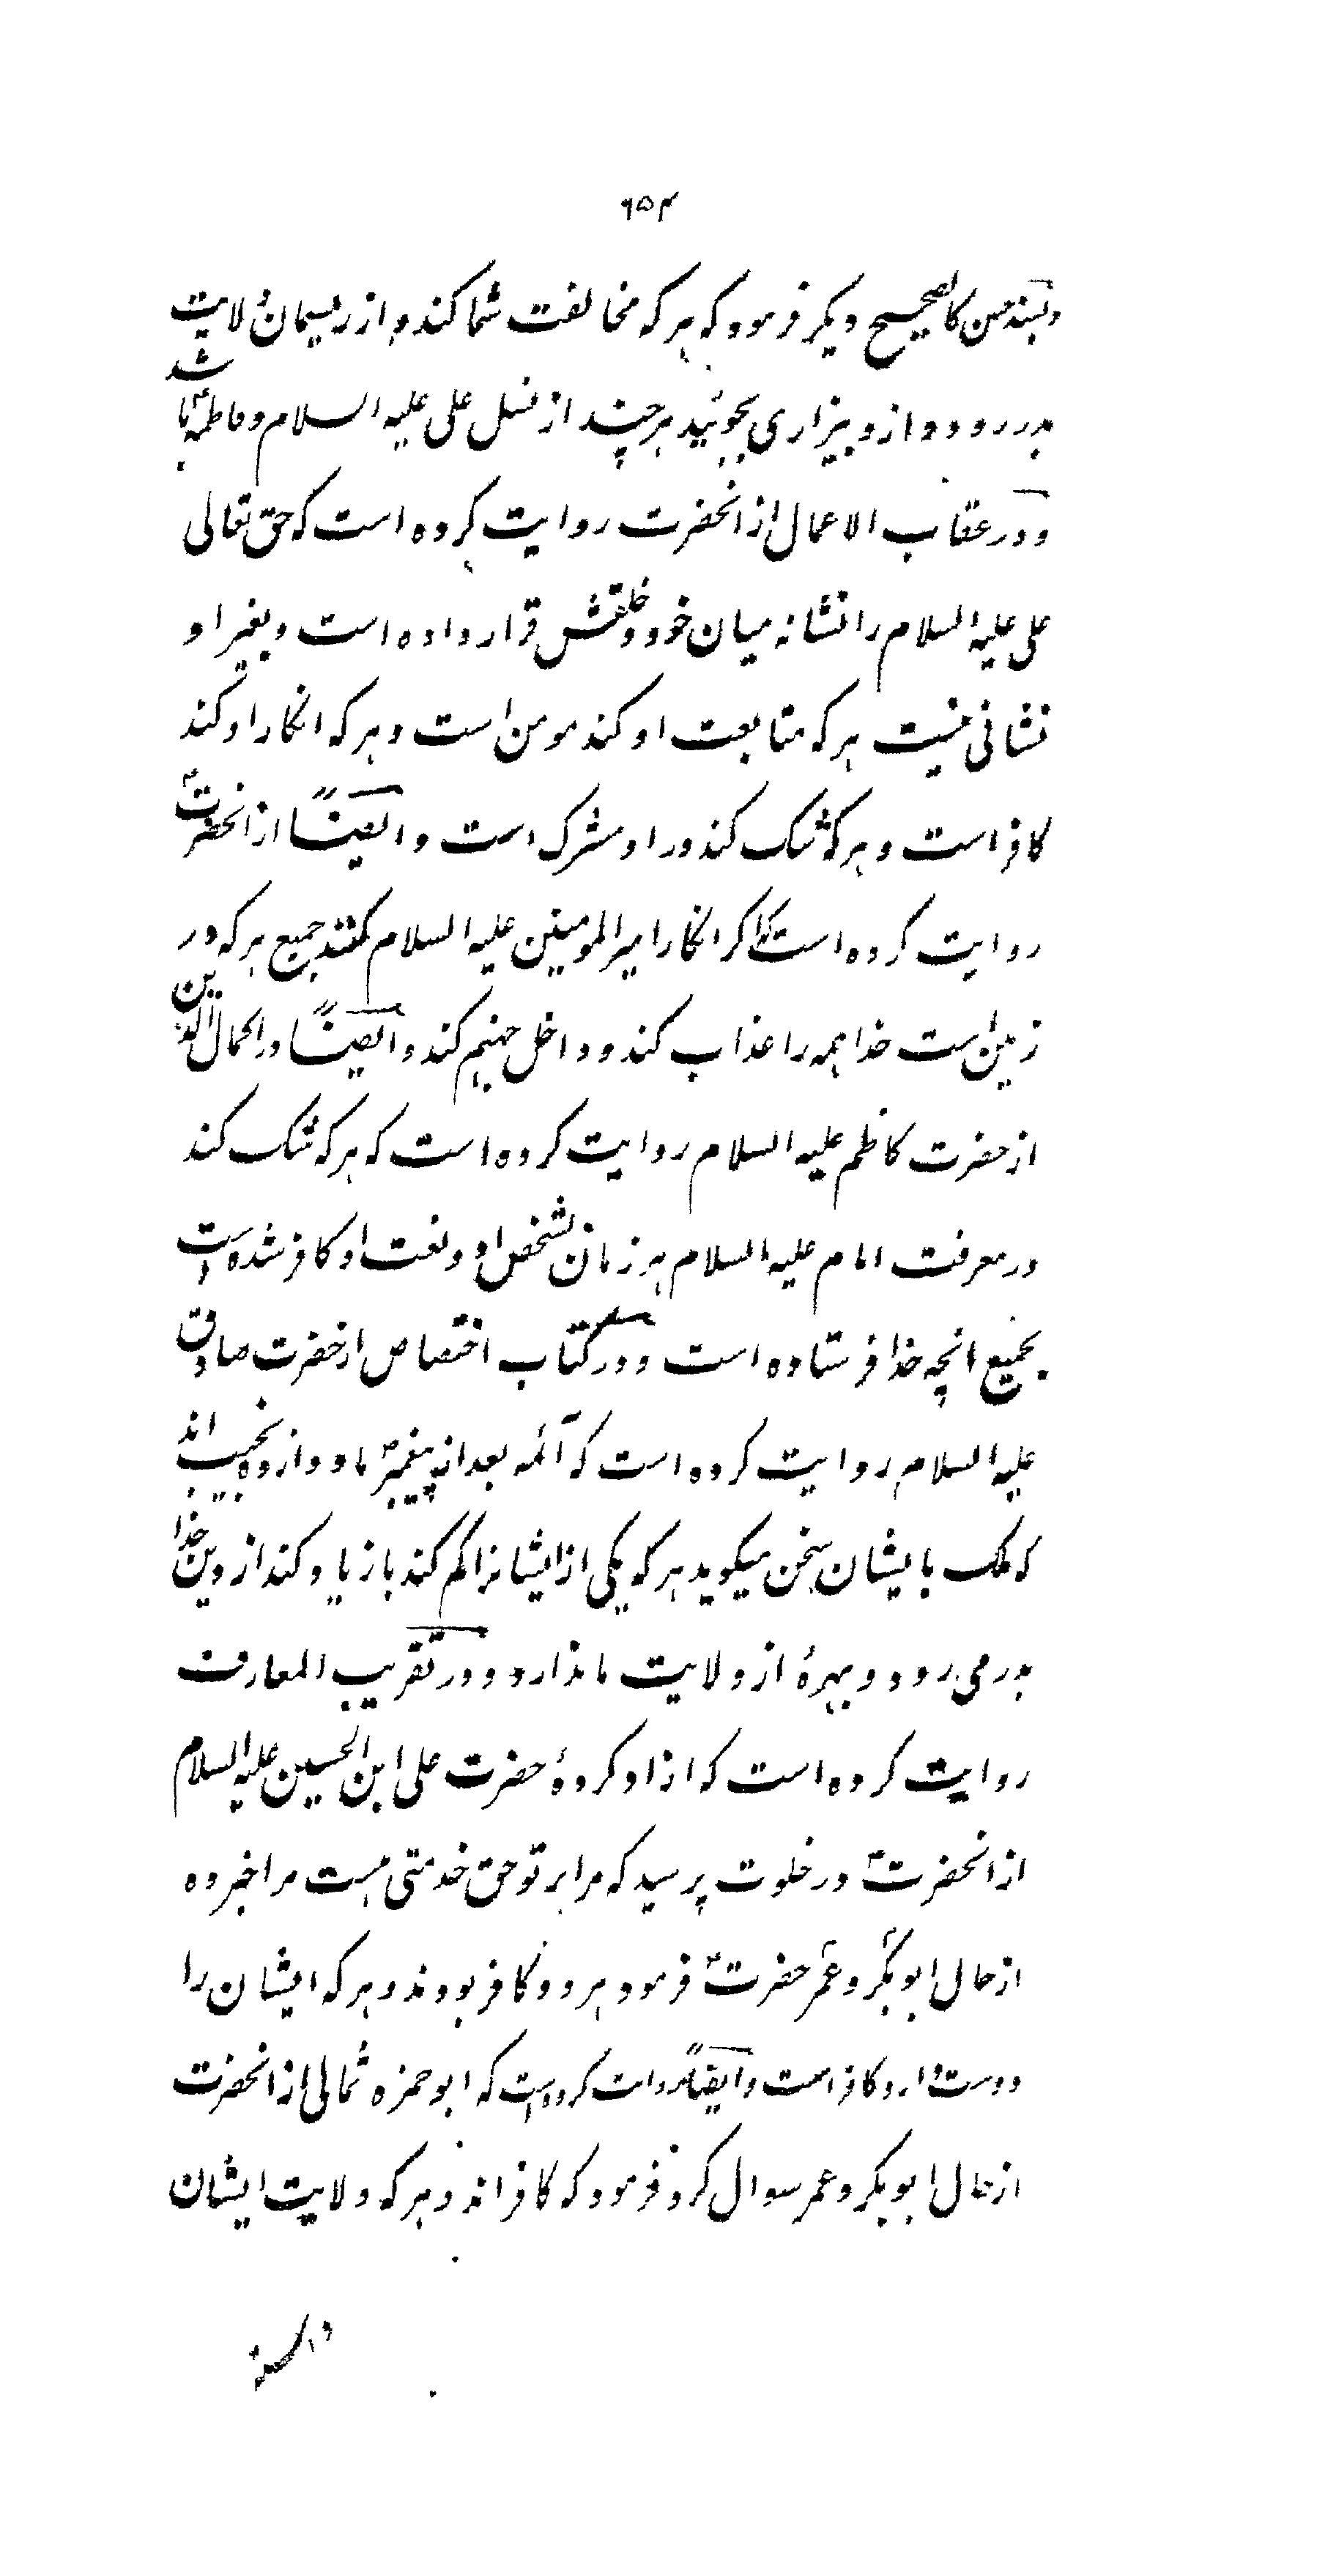 ۶۵۴
وبسند حسن کالصحیح دیگر فرمود که هر که مخالفت شما کند و از ریسمان ولایت
بدر رود و از و بیزاری بجوئید هر چند از نسل علی علیه السلام و فاطمهؑ باشد
و در عقاب الاعمال از انحضرت روایت کرده است که حق تعالی
علی علیه السلام را نشانه میان خود و خلقش قرار داده است و بغیر او
نشانی نیست هر که متابعت او کند مومن است و هر که انکار او کند
کافر است و هر که شک کند در او مشرک است و ایضاً از انحضرتؑ
روایت کرده است که اگر انکار امیر المومنین علیه السلام کنند جمیع هر که در
زمین است خدا همه را عذاب کند و داخل جهنم کند و ایضاً در اکمال الدین
از حضرت کاظم علیه السلام روایت کرده است که هر که شک کند
در معرفت امام علیه السلام هر زمان بشخص او و نعت او کافر شده است
بجمیع انچه خدا فرستاده است و در کتاب اختصاص از حضرت صادق
علیه السلام روایت کرده است که آئمه بعد از پیغمبرؐ ما دوازده نجیب اند
که ملک بایشان سخن میگوید هر که یکی از ایشانرا کم کند یا زیاد کند از دین خدا
بدر می رود و بهرهٔ از ولایت ما ندارد و در تقریب المعارف
روایت کرده است که ازاد کردهٔ حضرت علی ابن الحسین علیه السلام
از انحضرتؑ در خلوت پرسید که مرا بر تو حق خدمتی هست مرا خبر ده
از حال ابوبکر و عمر حضرتؑ فرمود هر دو کافر بودند و هر که ایشان را
دوست دارد کافر است و ایضاً روایت کرده است که ابو حمزه ثمالی از انحضرت
از حال ابوبکر و عمر سوال کرد فرمود که کافر اند و هر که ولایت ایشان